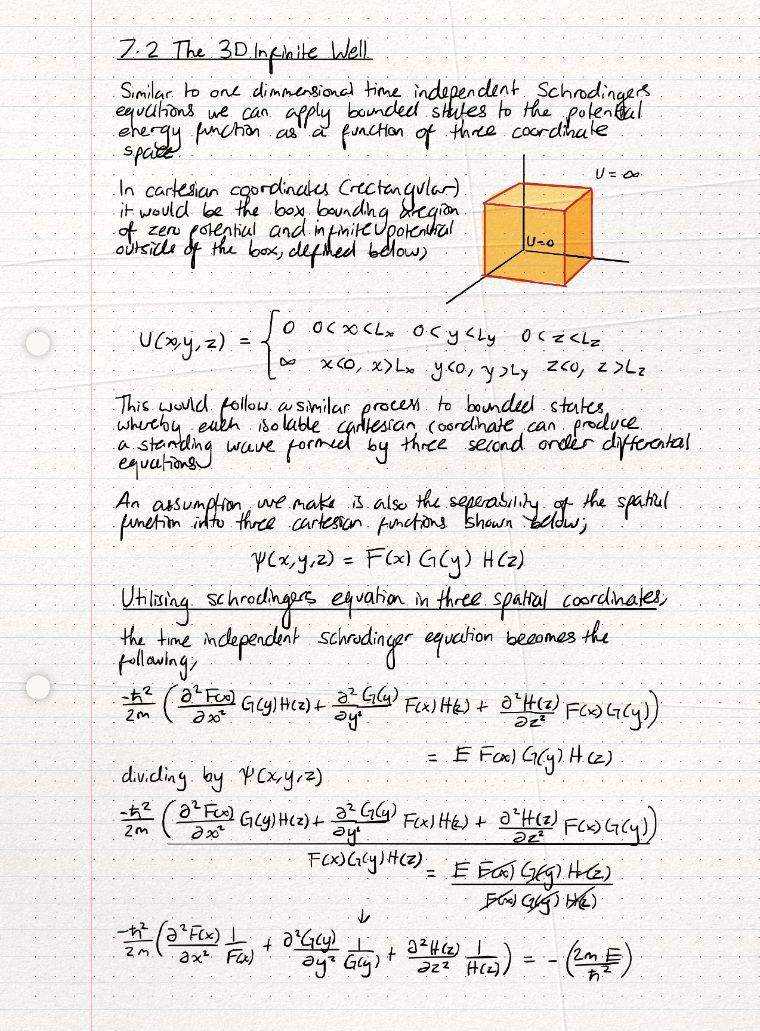 7.2 The 3D Infinite Well
Similar to one dimmensional time independent Schrodingers
equations we can apply bounded states to the potential
energy function as a function of three coordinate
space.
In cartesian coordinates (rectangular)
it would be the box bounding a region
of zero potential and infinite potential
outside of the box, defined below;
U = ∞
U=0
U(x,y,z) = { 0 0<x<Lx 0<y<Ly 0<z<Lz
∞ x<0, x>Lx y<0, y>Ly z<0, z>Lz
This would follow a similar process to bounded states
whereby each isolable cartesian coordinate can produce
a standing wave formed by three second order differential
equations
An assumption we make is also the seperability of the spatial
function into three cartesian functions shown below;
Ψ(x,y,z) = F(x) G(y) H(z)
Utilising schrodingers equation in three spatial coordinates,
the time independent schrodinger equation becomes the
following;
-ħ²/2m (∂²F(x)/∂x² G(y)H(z) + ∂²G(y)/∂y² F(x)H(z) + ∂²H(z)/∂z² F(x)G(y))
= E F(x) G(y) H(z)
dividing by Ψ(x,y,z)
-ħ²/2m (∂²F(x)/∂x² G(y)H(z) + ∂²G(y)/∂y² F(x)H(z) + ∂²H(z)/∂z² F(x)G(y))
F(x)G(y)H(z) = E F(x) G(y) H(z) / F(x) G(y) H(z)
↓
-ħ²/2m (∂²F(x)/∂x² 1/F(x) + ∂²G(y)/∂y² 1/G(y) + ∂²H(z)/∂z² 1/H(z)) = -(2mE/ħ²)